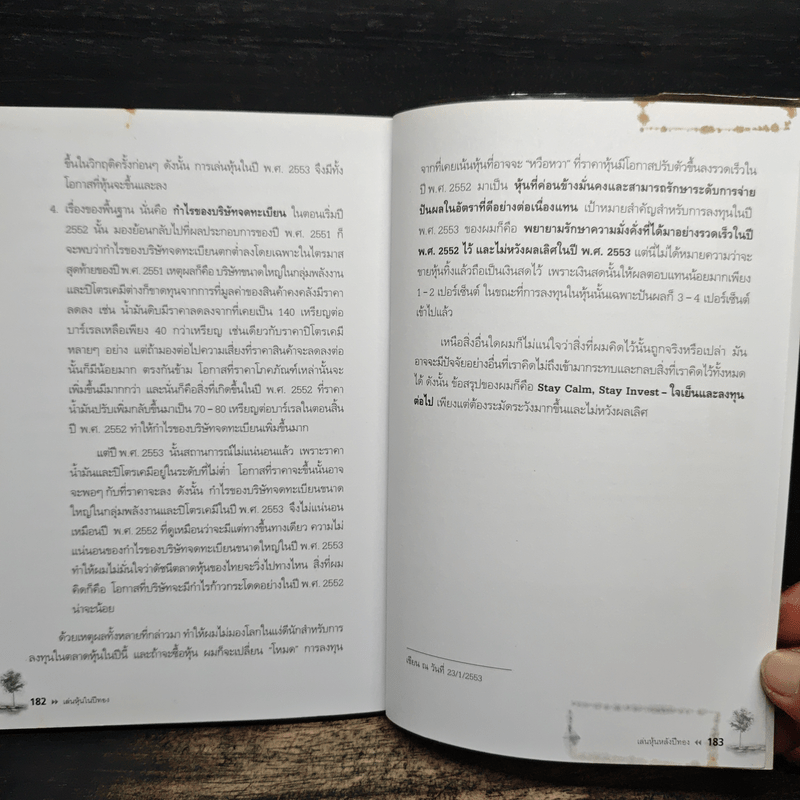 ขึ้นในวิกฤติครั้งก่อนๆ ดังนั้น การเล่นหุ้นในปี พ.ศ. 2553 จึงมีทั้ง
โอกาสที่หุ้นจะขึ้นและลง
4. เรื่องของพื้นฐาน นั่นคือ กำไรของบริษัทจดทะเบียน ในตอนเริ่มปี
2552 นั้น มองย้อนกลับไปที่ผลประกอบการของปี พ.ศ. 2551 ก็
จะพบว่ากำไรของบริษัทจดทะเบียนตกต่ำลงโดยเฉพาะในไตรมาส
สุดท้ายของปี พ.ศ. 2551 เหตุผลก็คือ บริษัทขนาดใหญ่ในกลุ่มพลังงาน
และปิโตรเคมีต่างก็ขาดทุนจากการที่มูลค่าของสินค้าคงคลังมีราคา
ลดลง เช่น น้ำมันดิบมีราคาลดลงจากที่เคยเป็น 140 เหรียญต่อ
บาร์เรลเหลือเพียง 40 กว่าเหรียญ เช่นเดียวกับราคาปิโตรเคมี
หลายๆ อย่าง แต่ถ้ามองต่อไปความเสี่ยงที่ราคาสินค้าจะลดลงต่อ
นั้นก็มีน้อยมาก ตรงกันข้าม โอกาสที่ราคาโภคภัณฑ์เหล่านั้นจะ
เพิ่มขึ้นมีมากกว่า และนั่นก็คือสิ่งที่เกิดขึ้นในปี พ.ศ. 2552 ที่ราคา
น้ำมันปรับเพิ่มกลับขึ้นมาเป็น 70 – 80 เหรียญต่อบาร์เรลในตอนสิ้น
ปี พ.ศ. 2552 ทำให้กำไรของบริษัทจดทะเบียนเพิ่มขึ้นมาก
แต่ปี พ.ศ. 2553 นั้นสถานการณ์ไม่แน่นอนแล้ว เพราะราคา
น้ำมันและปิโตรเคมีอยู่ในระดับที่ไม่ต่ำ โอกาสที่ราคาจะขึ้นนั้นอาจ
จะพอๆ กับที่ราคาจะลง ดังนั้น กำไรของบริษัทจดทะเบียนขนาด
ใหญ่ในกลุ่มพลังงานและปิโตรเคมีในปี พ.ศ. 2553 จึงไม่แน่นอน
เหมือนปี พ.ศ. 2552 ที่ดูเหมือนว่าจะมีแต่ทางขึ้นทางเดียว ความไม่
แน่นอนของกำไรของบริษัทจดทะเบียนขนาดใหญ่ในปี พ.ศ. 2553
ทำให้ผมไม่มั่นใจว่าดัชนีตลาดหุ้นของไทยจะวิ่งไปทางไหน สิ่งที่ผม
คิดก็คือ โอกาสที่บริษัทจะมีกำไรก้าวกระโดดอย่างในปี พ.ศ. 2552
น่าจะน้อย
ด้วยเหตุผลทั้งหลายที่กล่าวมา ทำให้ผมไม่มองโลกในแง่ดีนักสำหรับการ
ลงทุนในตลาดหุ้นในปีนี้ และถ้าจะซื้อหุ้น ผมก็จะเปลี่ยน “โหมด” การลงทุน
182 ›› เล่นหุ้นในปีทอง
จากที่เคยเน้นหุ้นที่อาจจะ “หวือหวา” ที่ราคาหุ้นมีโอกาสปรับตัวขึ้นลงรวดเร็วใน
ปี พ.ศ. 2552 มาเป็น หุ้นที่ค่อนข้างมั่นคงและสามารถรักษาระดับการจ่าย
ปันผลในอัตราที่ดีอย่างต่อเนื่องแทน เป้าหมายสำคัญสำหรับการลงทุนในปี
พ.ศ. 2553 ของผมก็คือ พยายามรักษาความมั่งคั่งที่ได้มาอย่างรวดเร็วในปี
พ.ศ. 2552 ไว้ และไม่หวังผลเลิศในปี พ.ศ. 2553 แต่นี่ไม่ได้หมายความว่าจะ
ขายหุ้นทิ้งแล้วถือเป็นเงินสดไว้ เพราะเงินสดนั้นให้ผลตอบแทนน้อยมากเพียง
1 – 2 เปอร์เซ็นต์ ในขณะที่การลงทุนในหุ้นนั้นเฉพาะปันผลก็ 3 – 4 เปอร์เซ็นต์
เข้าไปแล้ว
เหนือสิ่งอื่นใดผมก็ไม่แน่ใจว่าสิ่งที่ผมคิดไว้นั้นถูกจริงหรือเปล่า มัน
อาจจะมีปัจจัยอย่างอื่นที่เราคิดไม่ถึงเข้ามากระทบและกลบสิ่งที่เราคิดไว้ทั้งหมด
ได้ ดังนั้น ข้อสรุปของผมก็คือ Stay Calm, Stay Invest – ใจเย็นและลงทุน
ต่อไป เพียงแต่ต้องระมัดระวังมากขึ้นและไม่หวังผลเลิศ
เขียน ณ วันที่ 23/1/2553
เล่นหุ้นหลังปีทอง ‹‹ 183